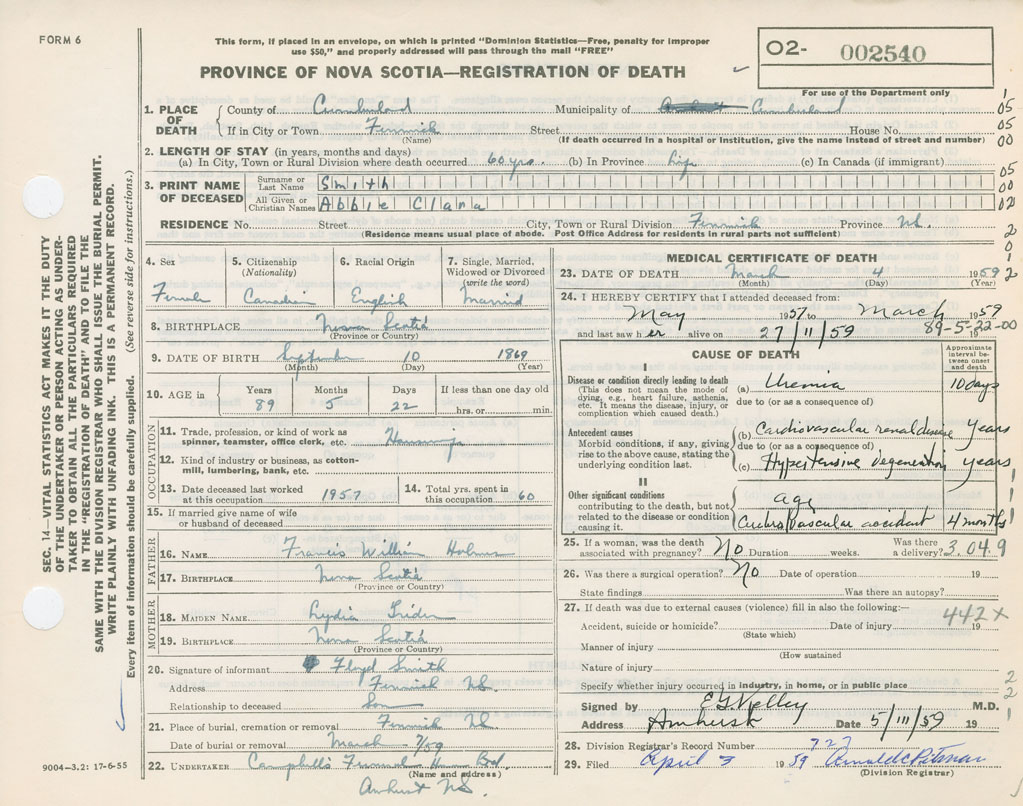 FORM 6
This form, if placed in an envelope, on which is printed "Dominion Statistics—Free, penalty for improper
use $50," and properly addressed will pass through the mail "FREE"
PROVINCE OF NOVA SCOTIA—REGISTRATION OF DEATH
O2- 002540
For use of the Department only
1. PLACE OF DEATH County of Cumberland Municipality of Cumberland
If in City or Town Fenwick Street House No.
(Name) (If death occurred in a hospital or Institution, give the name instead of street and number)
2. LENGTH OF STAY (in years, months and days)
(a) In City, Town or Rural Division where death occurred 60 yrs. (b) In Province Life (c) In Canada (if immigrant)
3. PRINT NAME OF DECEASED Surname or Last Name Smith
All Given or Christian Names Abbie Clara
RESIDENCE No. Street City, Town or Rural Division Fenwick Province N.S.
(Residence means usual place of abode. Post Office Address for residents in rural parts not sufficient)
05
05
00
05
00
02
2
0
1
2
4. Sex Female
5. Citizenship (Nationality) Canadian
6. Racial Origin English
7. Single, Married, Widowed or Divorced (write the word) Married
8. BIRTHPLACE Nova Scotia
(Province or Country)
9. DATE OF BIRTH September 10 1869
(Month) (Day) (Year)
10. AGE in Years 89 Months 5 Days 22 If less than one day old hrs. or min.
OCCUPATION
11. Trade, profession, or kind of work as spinner, teamster, office clerk, etc.
12. Kind of industry or business, as cotton-mill, lumbering, bank, etc.
13. Date deceased last worked at this occupation. 1957
14. Total yrs. spent in this occupation 60
15. If married give name of wife or husband of deceased
FATHER
16. NAME Francis William Holmes
17. BIRTHPLACE Nova Scotia
(Province or Country)
MOTHER
18. MAIDEN NAME Lydia
19. BIRTHPLACE Nova Scotia
(Province or Country)
20. Signature of informant Floyd Smith
Address Fenwick N.S.
Relationship to deceased Son
21. Place of burial, cremation or removal Fenwick N.S.
Date of burial or removal March - 7/59
22. UNDERTAKER Campbell's Funeral Home
(Name and address)
Amherst N.S.
MEDICAL CERTIFICATE OF DEATH
23. DATE OF DEATH March 4 1959
(Month) (Day) (Year)
24. I HEREBY CERTIFY that I attended deceased from:
May 1957 to March 1959
and last saw her alive on 27/11/59 19
89-5-22-00
CAUSE OF DEATH
Approximate interval between onset and death
I
Disease or condition directly leading to death
(This does not mean the mode of dying, e.g., heart failure, asthenia, etc. It means the disease, injury, or complication which caused death.)
(a) Uremia 10 days
due to (or as a consequence of)
Antecedent causes
Morbid conditions, if any, giving rise to the above cause, stating the underlying condition last.
(b) Cardiovascular renal disease years
due to (or as a consequence of)
(c) Hypertensive degeneration years
II
Other significant conditions contributing to the death, but not related to the disease or condition causing it.
age
Cerebro vascular accident 4 months
25. If a woman, was the death associated with pregnancy? No Duration weeks. Was there a delivery? 3.04.9
26. Was there a surgical operation? No Date of operation 19
State findings Was there an autopsy?
27. If death was due to external causes (violence) fill in also the following:—
442X
Accident, suicide or homicide? Date of injury 19
(State which)
Manner of injury
(How sustained)
Nature of injury
Specify whether injury occurred in industry, in home, or in public place
Signed by M.D.
Address Amherst Date 5/111/59 19
28. Division Registrar's Record Number 727
29. Filed April 3 1959
(Division Registrar)
SEC. 14—VITAL STATISTICS ACT MAKES IT THE DUTY
OF THE UNDERTAKER OR PERSON ACTING AS UNDER-
TAKER TO OBTAIN ALL THE PARTICULARS REQUIRED
IN THE "REGISTRATION OF DEATH" AND TO FILE THE
SAME WITH THE DIVISION REGISTRAR WHO SHALL ISSUE THE BURIAL PERMIT.
WRITE PLAINLY WITH UNFADING INK. THIS IS A PERMANENT RECORD.
Every item of information should be carefully supplied. (See reverse side for instructions.)
9004—3.2: 17-6-55